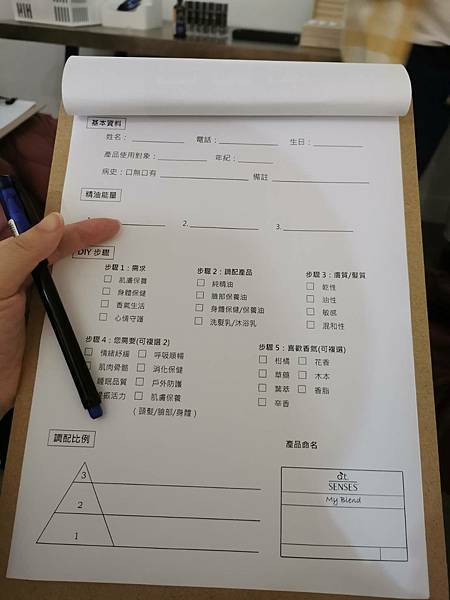 基本資料
姓名： 電話： 生日：
產品使用對象： 年紀：
病史：口無口有 備註
精油能量
2. 3.
DIY 步驟
步驟 1：需求 步驟 2：調配產品 步驟 3：膚質/髮質
肌膚保養 純精油 乾性
身體保健 臉部保養油 油性
香氣生活 身體保健/保養油 敏感
心情守護 洗髮乳/沐浴乳 混和性
步驟 4：您需要(可複選 2) 步驟 5：喜歡香氣(可複選)
情緒紓緩 呼吸順暢 柑橘 花香
肌肉骨骼 消化保健 草藥 木本
睡眠品質 戶外防護 葉萃 香脂
活力 肌膚保養 辛香
(頭髮/臉部/身體)
調配比例 產品命名
3
2
1
at
SENSES
My Blend